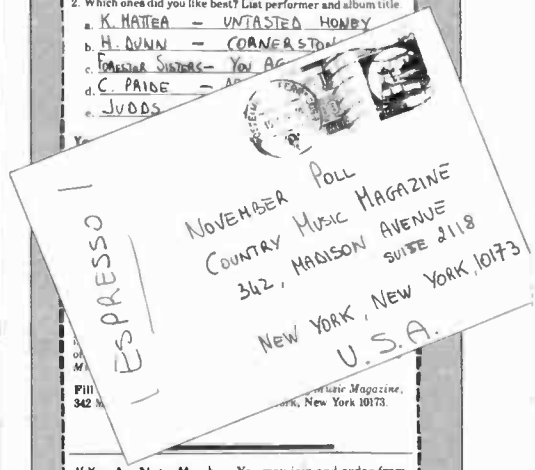 2. Which ones did you like best? List performer and album title.
a. K. MATTEA – UNTASTED HONEY
b. H. DUNN – CORNERSTON
c. FORESTER SISTERS – YOU AG
d. C. PRIDE –
e. JUDDS
ESPRESSO
NOVEMBER POLL
COUNTRY MUSIC MAGAZINE
342, MADISON AVENUE
SUITE 2118
NEW YORK, NEW YORK, 10173
U.S.A.
Fill Music Magazine,
342 New York 10173.